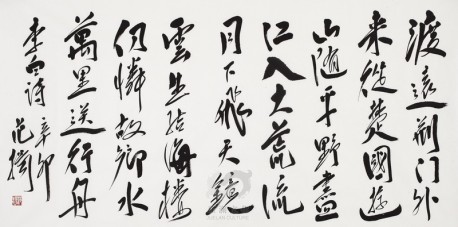 渡遠荆门外
来從楚國遊
山随平野盡
江入大荒流
月下飛天鏡
雲生结海樓
仍憐故鄉水
萬里送行舟
李白诗
辛卯
范